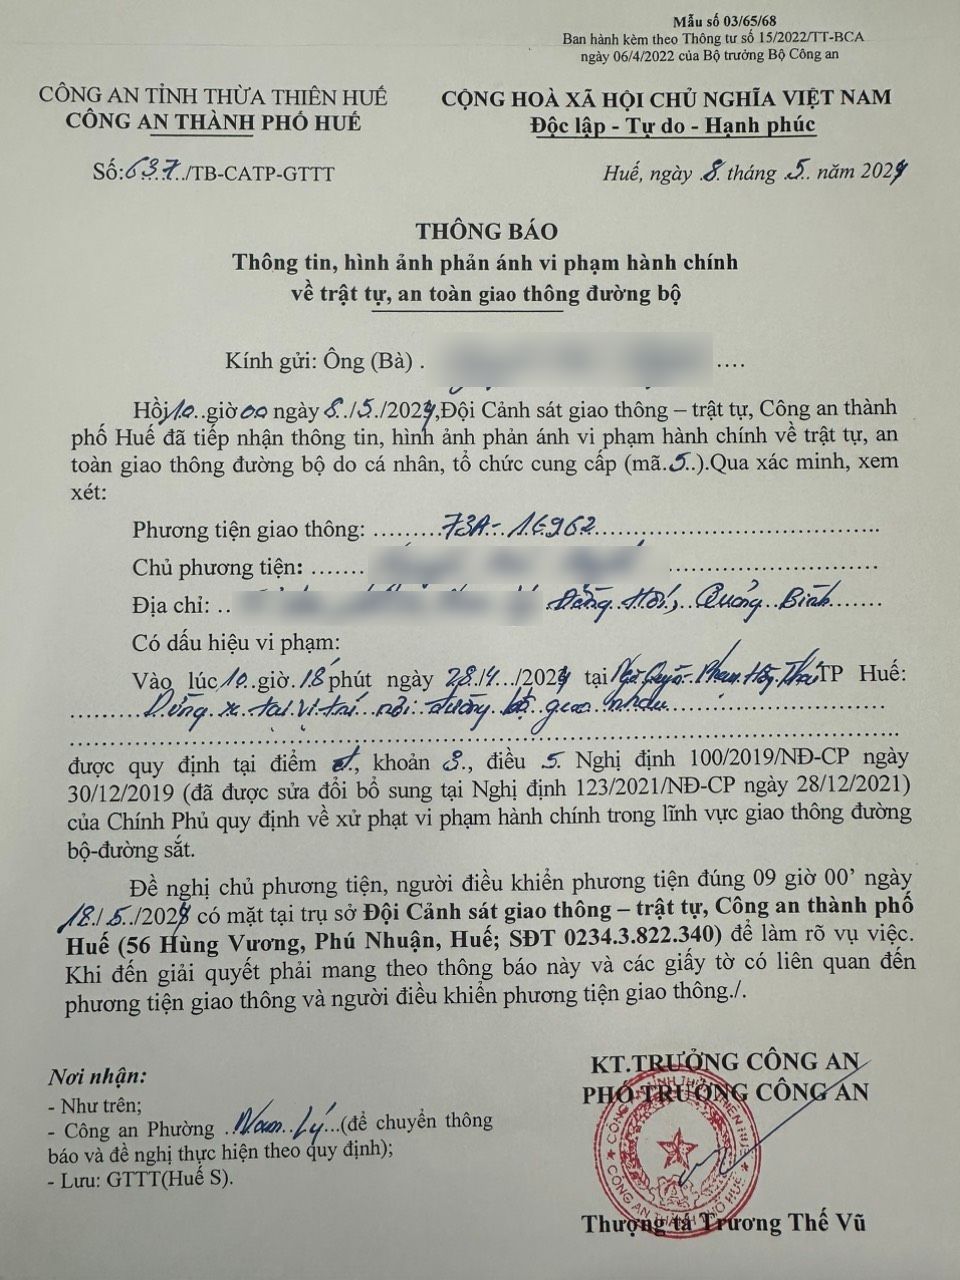 Mẫu số 03/65/68
Ban hành kèm theo Thông tư số 15/2022/TT-BCA
ngày 06/4/2022 của Bộ trưởng Bộ Công an
CÔNG AN TỈNH THỪA THIÊN HUẾ
CÔNG AN THÀNH PHỐ HUẾ
CỘNG HOÀ XÃ HỘI CHỦ NGHĨA VIỆT NAM
Độc lập - Tự do - Hạnh phúc
Số:637../TB-CATP-GTTT
Huế, ngày .8. tháng .5.. năm 2024
THÔNG BÁO
Thông tin, hình ảnh phản ánh vi phạm hành chính
về trật tự, an toàn giao thông đường bộ
Kính gửi: Ông (Bà) . ....
Hồi10..giờ00 ngày 8../5./2024,Đội Cảnh sát giao thông – trật tự, Công an thành
phố Huế đã tiếp nhận thông tin, hình ảnh phản ánh vi phạm hành chính về trật tự, an
toàn giao thông đường bộ do cá nhân, tổ chức cung cấp (mã.5..).Qua xác minh, xem
xét:
Phương tiện giao thông: .........73A-16962.................................
Chủ phương tiện: ....... .........................
Địa chỉ: .. Đồng Hới, Quảng Bình.......
Có dấu hiệu vi phạm:
Vào lúc10..giờ.18 phút ngày 28./4.../2024 tại Ngô Quyền - Phạm Hồng Thái TP Huế:
.........Dừng xe tại vị trí nơi đường bộ giao nhau.........................
....................................................................................
được quy định tại điểm đ., khoản 3., điều 5. Nghị định 100/2019/NĐ-CP ngày
30/12/2019 (đã được sửa đổi bổ sung tại Nghị định 123/2021/NĐ-CP ngày 28/12/2021)
của Chính Phủ quy định về xử phạt vi phạm hành chính trong lĩnh vực giao thông đường
bộ-đường sắt.
Đề nghị chủ phương tiện, người điều khiển phương tiện đúng 09 giờ 00’ ngày
18./5./2024 có mặt tại trụ sở Đội Cảnh sát giao thông – trật tự, Công an thành phố
Huế (56 Hùng Vương, Phú Nhuận, Huế; SĐT 0234.3.822.340) để làm rõ vụ việc.
Khi đến giải quyết phải mang theo thông báo này và các giấy tờ có liên quan đến
phương tiện giao thông và người điều khiển phương tiện giao thông./.
Nơi nhận:
- Như trên;
- Công an Phường ..Nam Lý...(để chuyển thông
báo và đề nghị thực hiện theo quy định);
- Lưu: GTTT(Huế S).
KT.TRƯỞNG CÔNG AN
PHÓ TRƯỞNG CÔNG AN
CÔNG AN TỈNH THỪA THIÊN HUẾ
CÔNG AN THÀNH PHỐ HUẾ
Thượng tá Trương Thế Vũ